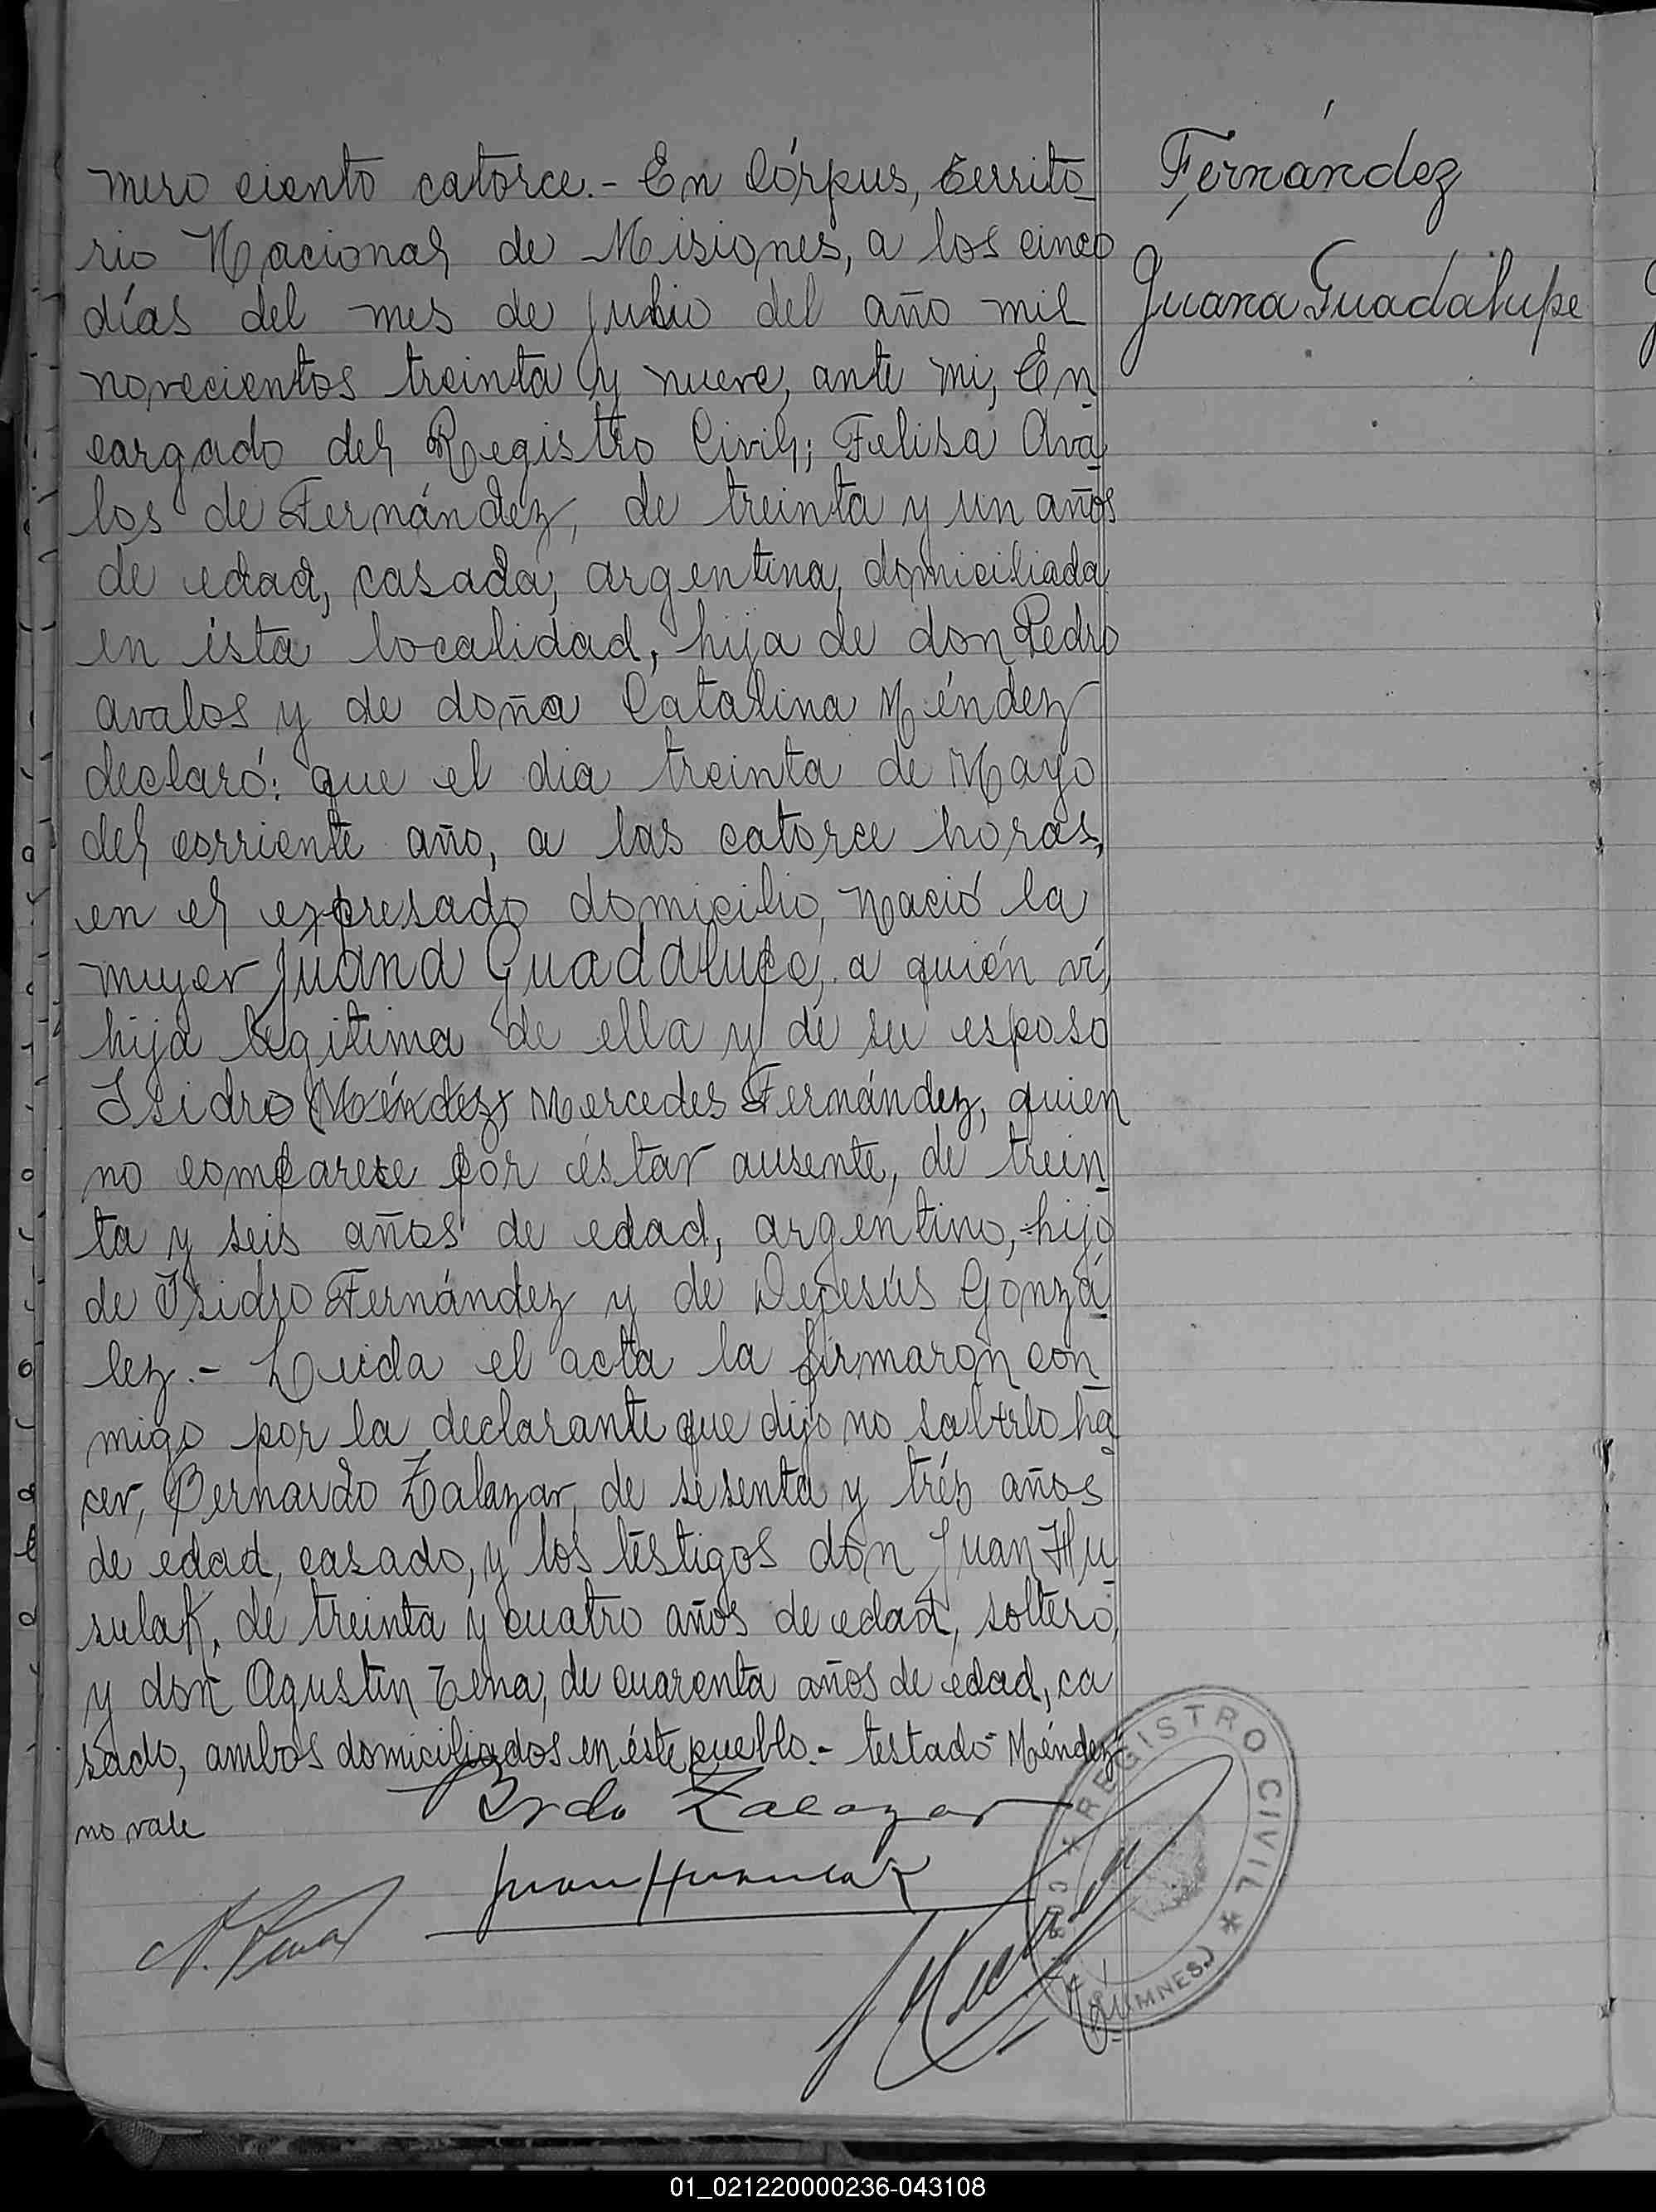 mero ciento catorce.- En Córpus, territo_
rio Nacional de Misiones, a los cinco
días del mes de Julio del año mil
novecientos treinta y nueve, ante mi, En_
cargado del Registro Civil; Felisa Ava_
los de Fernández, de treinta y un años
de edad, casada, argentina, domiciliada
en ésta localidad, hija de don Pedro
avalos y de doña Catalina Méndez
declaró: que el dia treinta de Mayo
del corriente año, a las catorce horas,
en el expresado domicilio, nació la
mujer Juana Guadalupe, a quién ví,
hija legitima de ella y de su esposo
Isidro (Méndez) Mercedes Fernández, quien
no comparece por éstar ausente, de trein_
ta y seis años de edad, argentino, hijo
de Isidro Fernández y de Dejesús Gonzá_
lez.- Leida el acta la firmaron con_
migo por la declarante que dijo no saberlo ha_
cer, Bernardo Zalazar, de sesenta y trés años
de edad, casado, y los testigos don Juan Hu_
sulak, de treinta y cuatro años de edad, soltero,
y don Agustin Tena, de cuarenta años de edad, ca
sado, ambos domiciliados en éste pueblo.- testado- Méndez-
no vale
Fernández
Juana Guadalupe
Brdo Zalazar
Juan Husulak
A. Tena
REGISTRO CIVIL
01_021220000236-043108